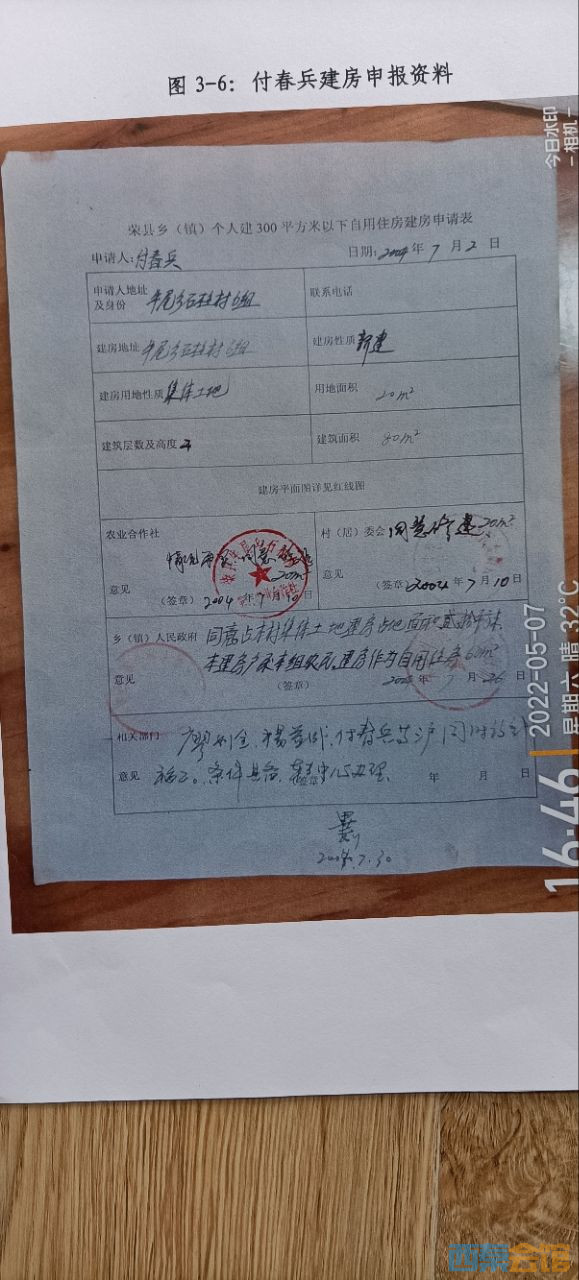 图 3-6: 付春兵建房申报资料
今日水印
- 相机 -
荣县乡（镇）个人建300平方米以下自用住房建房申请表
申请人: 付春兵 日期: 2004年 7 月 2 日
申请人地址及身份 石柱村6组 联系电话
建房地址 石柱村6组 建房性质 新建
建房用地性质 集体土地 用地面积 20m²
建筑层数及高度 建筑面积 80m²
建房平面图详见红线图
农业合作社 村（居）委会 同意修建20m²
情况 同意 20m²
意见 意见
（签章）2004年7月10日 （签章）2004年7月10日
乡（镇）人民政府 同意占本村集体土地建房占地面积贰拾平方米
本建房户系本组农民,建房作为自用住房
意见 （签章） 7月26日
相关部门 付春兵
意见 条件具备 办理 年 月 日
7.30
2022-05-07
星期六 晴 32℃
16:46
西秦会馆